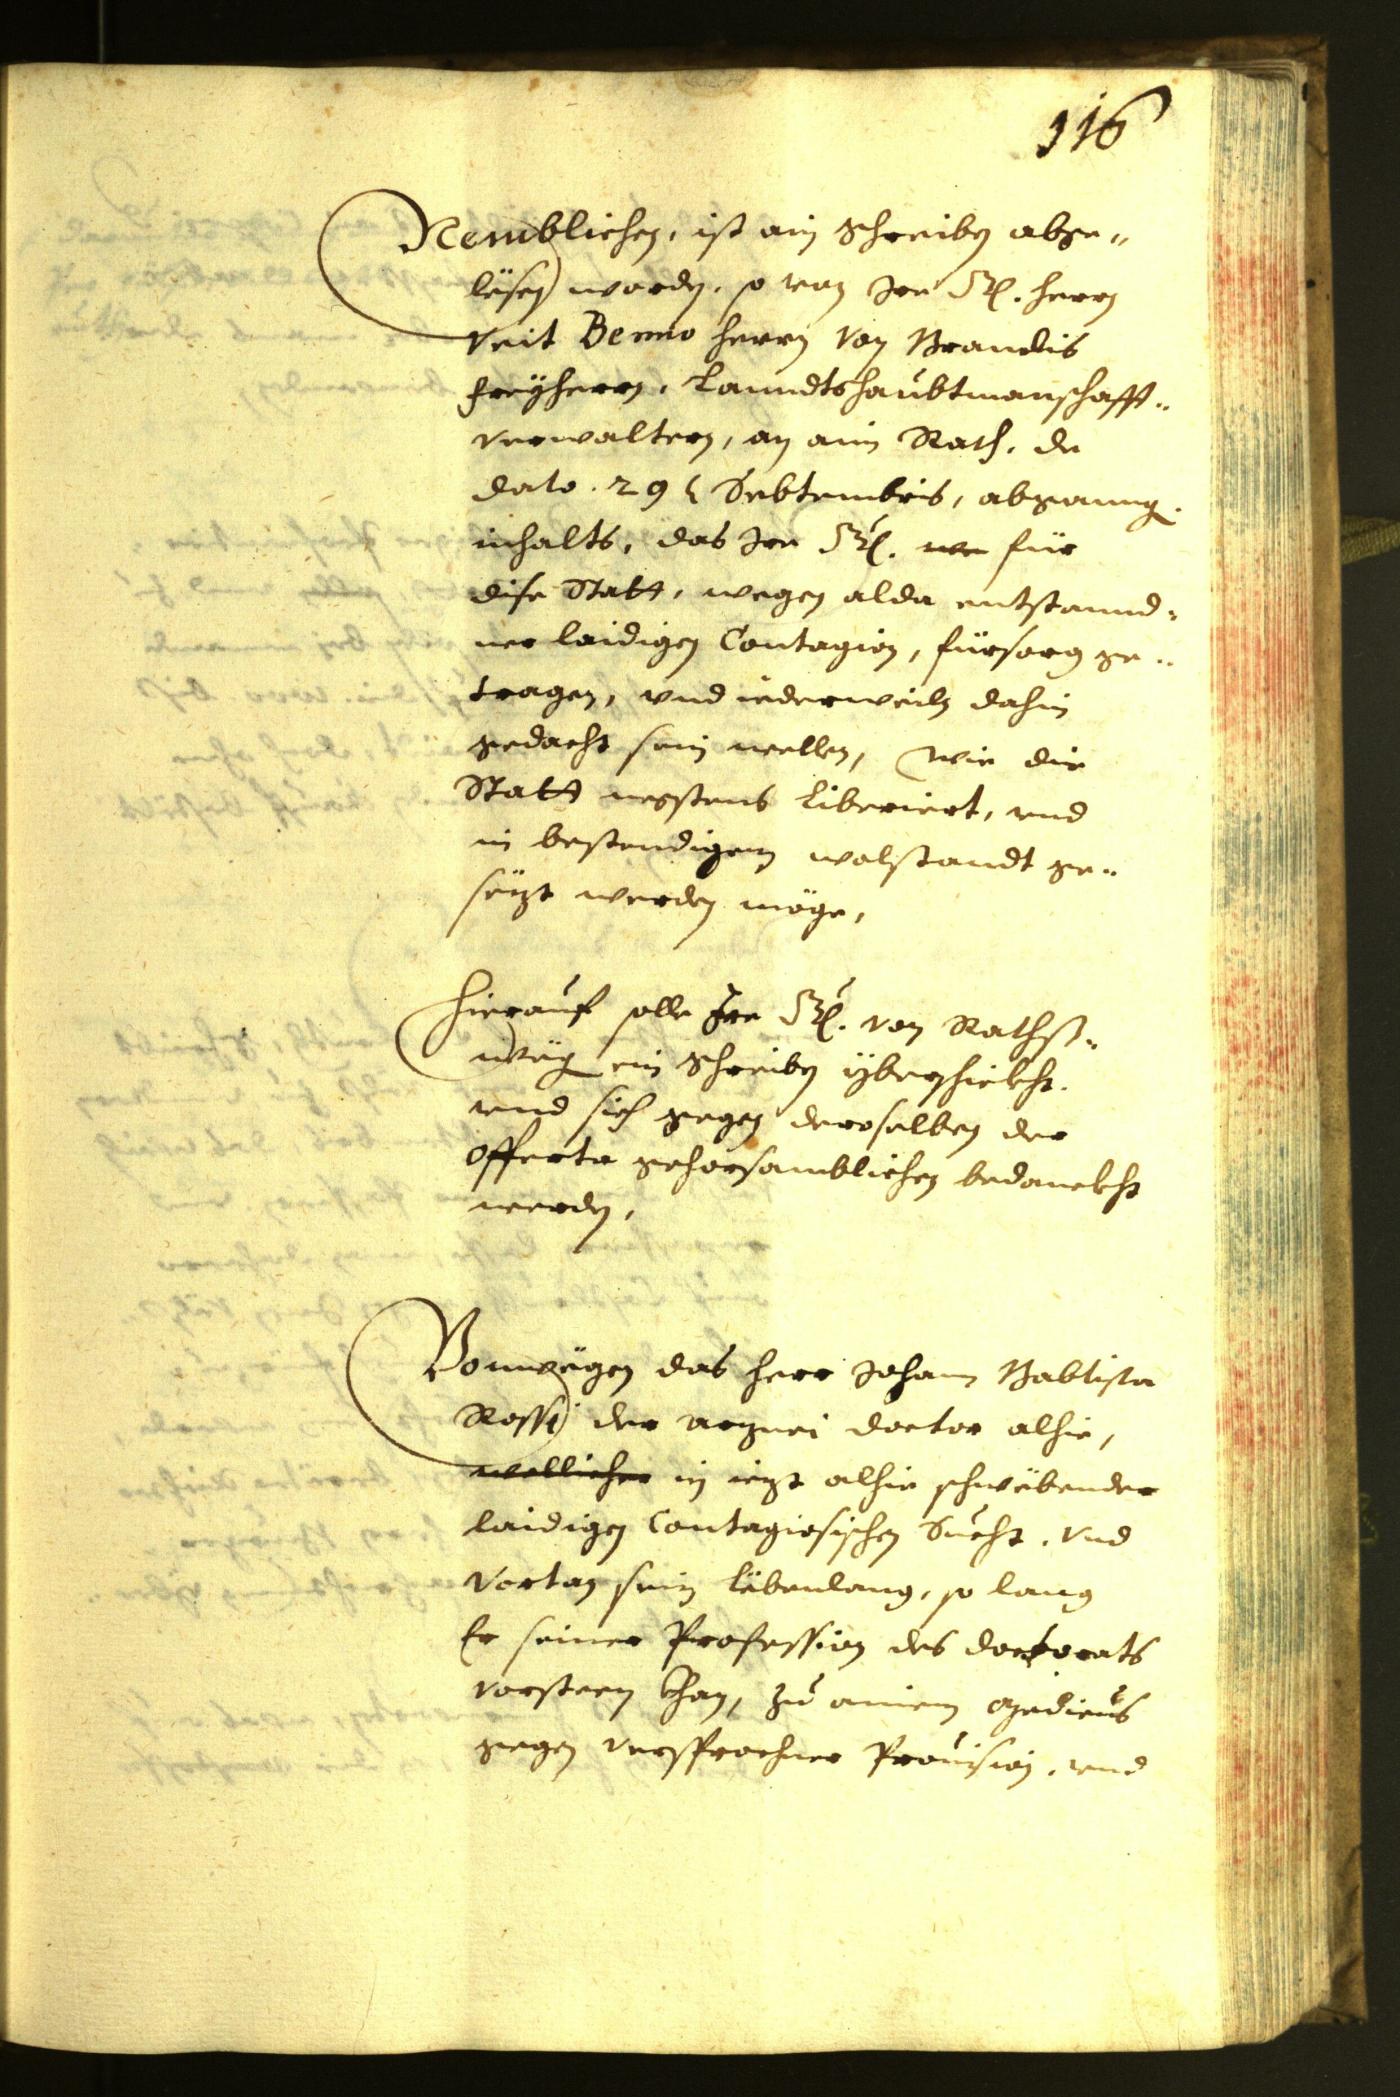 116
Nemblichen, ist ain Schreiben abge„
lësen worden, so von Ire Gn. herrn
Veit Benno herrn von Brandis
freÿherrn, Lanndtshaubtmanschafft„
verwaltern, an ain Rath, de
dato 29 Septembris, abganng.
inhalts, das Ire Gn. für
dise Statt, wegen alda entstannd„
ner laidigen Contagion, fürsorg ge„
tragen, vnd iederweiln dahin
gedacht sein wellen, wie die
Statt negstens liberiert, vnd
in bestendigem wolstandt ge„
sëzt werden möge,
Hierauf solle Ire Gn. von Raths„
wëg ein Schreiben yberschickht,
vnd sich gegen derselben der
offerta gehorsamblichen bedanckht
werden,
Vonwëgen das herr Johann Babtista
Rossi der arznei doctor alhie,
wellicher in iezt alhie schwëbender
laidigen Contagiosischen Sucht, vnd
vortan sein lëbenlang, so lang
Er seiner Profession des doctorats
vorsteen khan, zu ainem Medicus
gegen versprochner Prouision, vnd